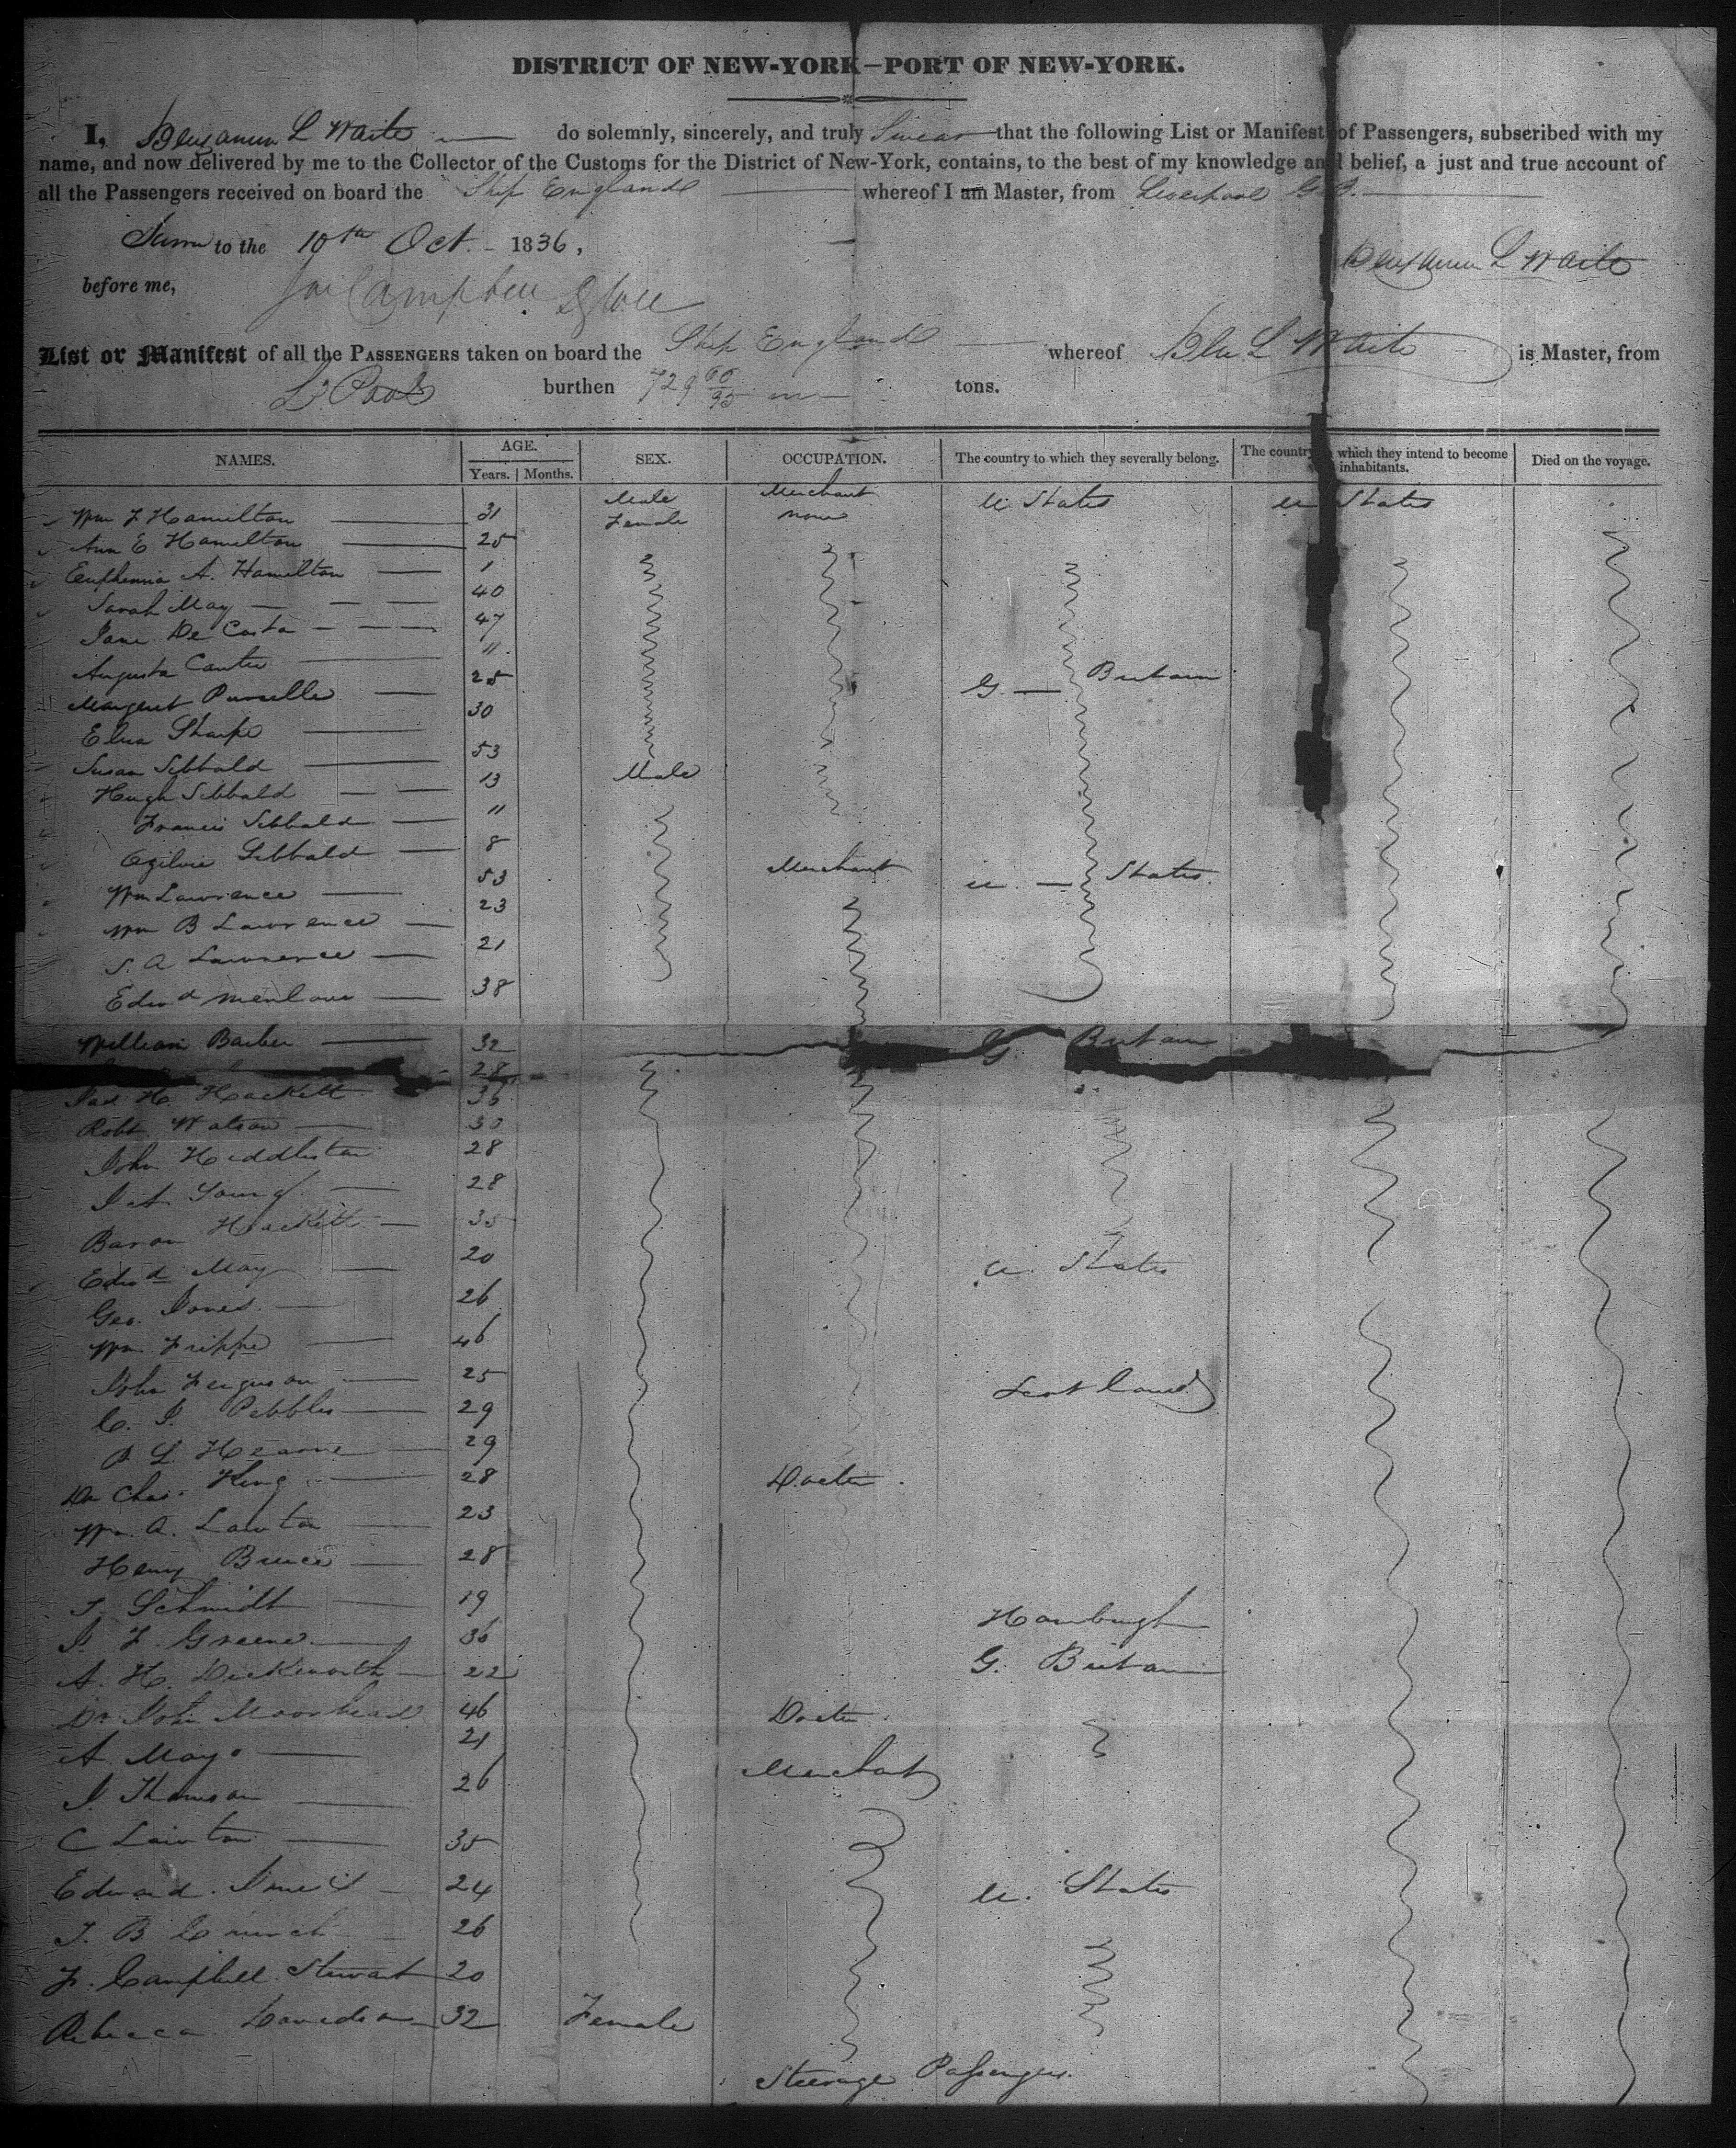 DISTRICT OF NEW-YORK—PORT OF NEW-YORK.
I, Benjamin L Waite do solemnly, sincerely, and truly Swear that the following List or Manifest of Passengers, subscribed with my
name, and now delivered by me to the Collector of the Customs for the District of New-York, contains, to the best of my knowledge and belief, a just and true account of
all the Passengers received on board the Ship England whereof I am Master, from Liverpool G.B.
to the 10th Oct. 1836,
Benjamin L Waite
before me,
List or Manifest of all the PASSENGERS taken on board the Ship England whereof Ben L Waite is Master, from
L'Pool burthen 729 60/95 tons.
NAMES. AGE. Years. Months. SEX. OCCUPATION. The country to which they severally belong. The country which they intend to become inhabitants. Died on the voyage.
Wm F Hamilton 31 Male Merchant U. States U States
Ann E Hamilton 25 Female None
Euphemia A. Hamilton 1
Sarah May 40
Jane De Casta 47
Augusta 11
Margaret 25 G Britain
Eliza Sharpe 30
Susan Sibbald 53
Hugh Sibbald 13 Male
Francis Sibbald 11
Ogilvie Sibbald 8
Wm Lawrence 53 Merchant U. States
Wm B Lawrence 23
S. A Lawrence 21
Edwd 38
William Barber 32 G Britain
28
Jas. H. Hackett 36
Robt. Watson 30
John Hiddleston 28
Young 28
Baron Hackett 35
Edwd May 20 U. States
Geo. Jones 26
Wm Frippe 46
John Ferguson 25 Scotland
C. J. Pebbles 29
P. L. Hearne 29
Dr Chas. King 28 Doctor
Wm. A. Lawton 23
Henry Bruce 28
T. Schmidt 19 Hamburgh
J. F. Greene 36 G. Britain
A. H. Duckworth 22
Dr. John Moorhead 46 Doctor
A. Mayo 21 Merchant
J. Thomson 26
C Lawton 35
Edward 24 U. States
T. B 26
F. Campbell Stewart 20
Rebecca Davidson 32 Female
Steerage Passengers.